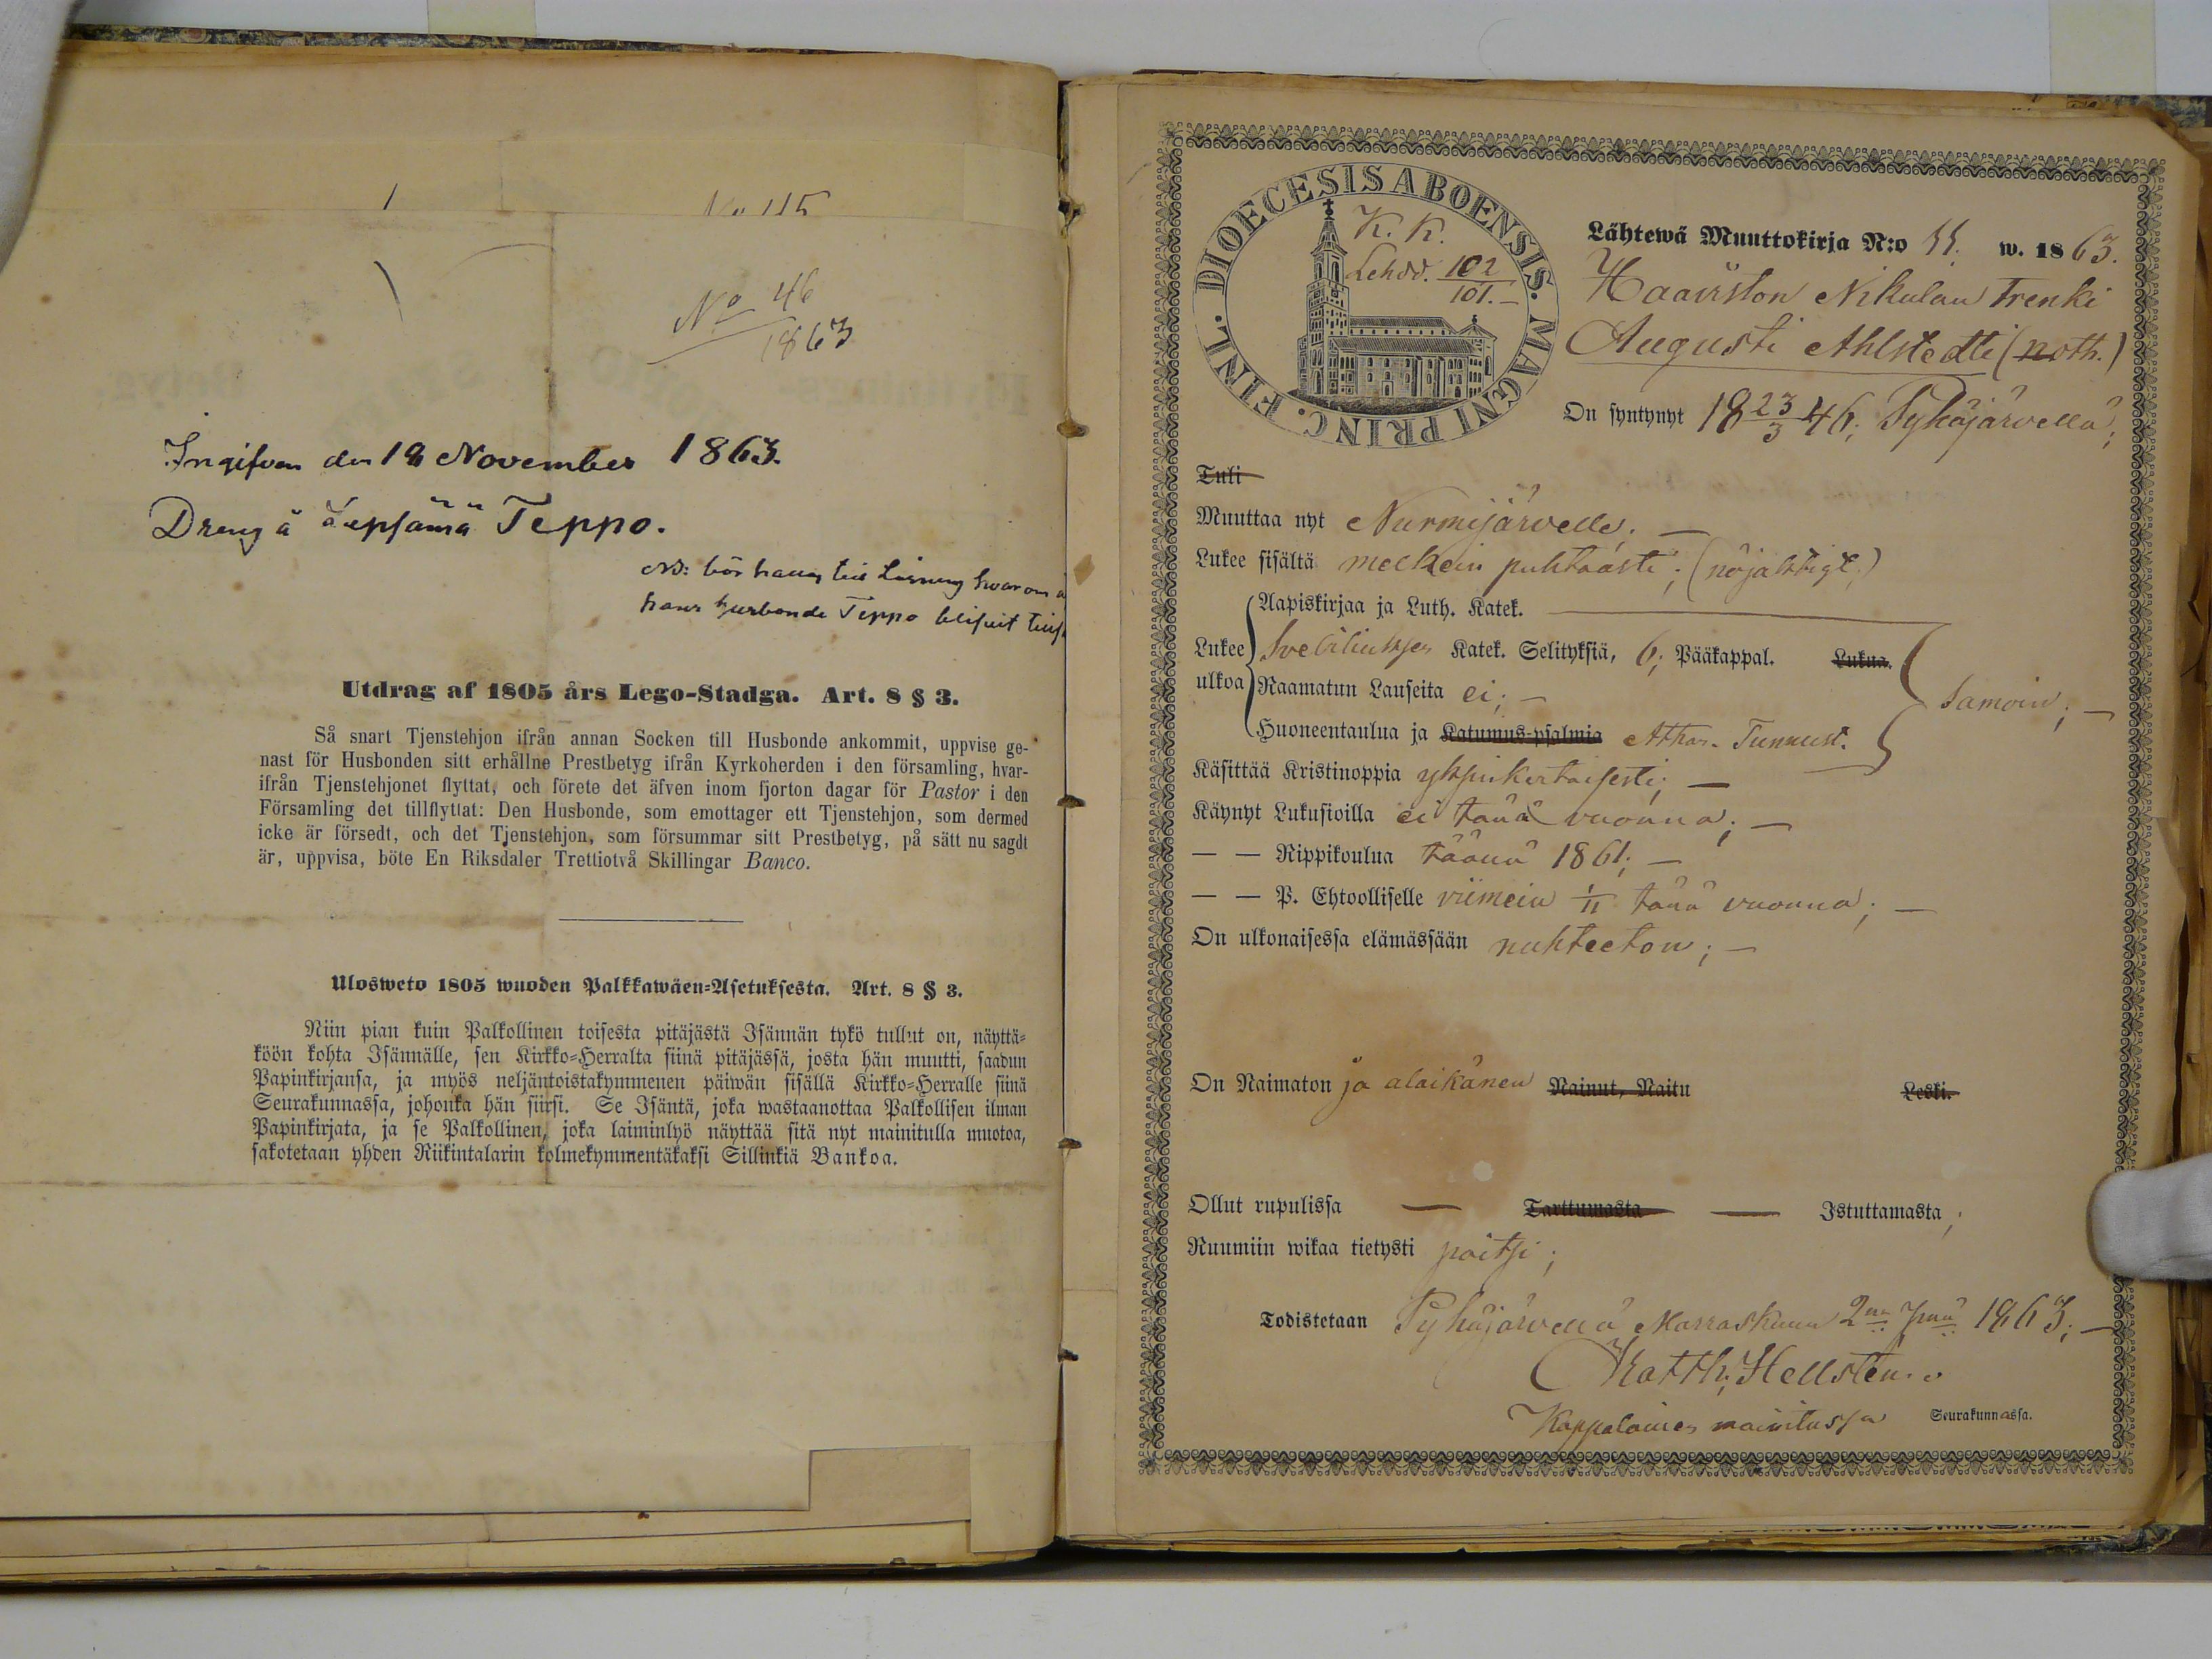 No 115
No 46
1863
Ingifven den 18 November 1863.
Dreng å Lepsämä Teppo.
NB: bör till Läsning hvarom
hans husbonde Teppo blifvit
Utdrag af 1805 års Lego-Stadga. Art. 8 § 3.
Så snart Tjenstehjon ifrån annan Socken till Husbonde ankommit, uppvise ge-
nast för Husbonden sitt erhållne Prestbetyg ifrån Kyrkoherden i den församling, hvar-
ifrån Tjenstehjonet flyttat, och förete det äfven inom fjorton dagar för Pastor i den
Församling det tillflyttat: Den Husbonde, som emottager ett Tjenstehjon, som dermed
icke är försedt, och det Tjenstehjon, som försummar sitt Prestbetyg, på sätt nu sagdt
är, uppvisa, böte En Riksdaler Trettiotvå Skillingar Banco.
Ulosweto 1805 wuoden Palkkawäen-Asetuksesta. Art. 8 § 3.
Niin pian kuin Palkollinen toisesta pitäjästä Isännän tykö tullut on, näyttä-
köön kohta Isännälle, sen Kirkko-Herralta siinä pitäjässä, josta hän muutti, saadun
Papinkirjansa, ja myös neljäntoistakymmenen päiwän sisällä Kirkko-Herralle siinä
Seurakunnassa, johonka hän siirsi. Se Isäntä, joka wastaanottaa Palkollisen ilman
Papinkirjata, ja se Palkollinen, joka laiminlyö näyttää sitä nyt mainitulla muotoa,
sakotetaan yhden Riikintalarin kolmekymmentäkaksi Sillinkiä Bankoa.
DIOECESIS ABOENSIS. MAGNI PRINC. FINL.
K. K.
Lehd. 102
101.
Lähtewä Muuttokirja N:o 11. w. 1863.
Haaviston Nikulan trenki
Augusti Ahlstedti (noth.)
On syntynyt 18 23/3 46; Pyhäjärvellä;
Tuli
Muuttaa nyt Nurmijärvelle; —
Lukee sisältä melkein puhtaasti; (nöjaktigt.)
Aapiskirjaa ja Luth. Katek. —
Lukee Svebiliuksen Katek. Selityksiä, 6; Pääkappal. Lukua.
ulkoa Raamatun Lauseita ei; — samoin; —
Huoneentaulua ja Katumus-psalmia Athan. Tunnust.
Käsittää Kristinoppia yksinkertaisesti; —
Käynyt Lukusioilla ei tänä vuonna; —
— — Rippikoulua täänä 1861; —
— — P. Ehtoolliselle viimein 1/11 tänä vuonna; —
On ulkonaisessa elämässään nuhteeton; —
On Naimaton ja alaikänen Nainut, Naitu Leski.
Ollut rupulissa — Tarttumasta — Istuttamasta;
Ruumiin wikaa tietysti paitsi;
Todistetaan Pyhäjärvellä Marraskuun 2na pnä 1863; —
Matth; Hellstén..
Kappalainen mainitussa Seurakunnassa.